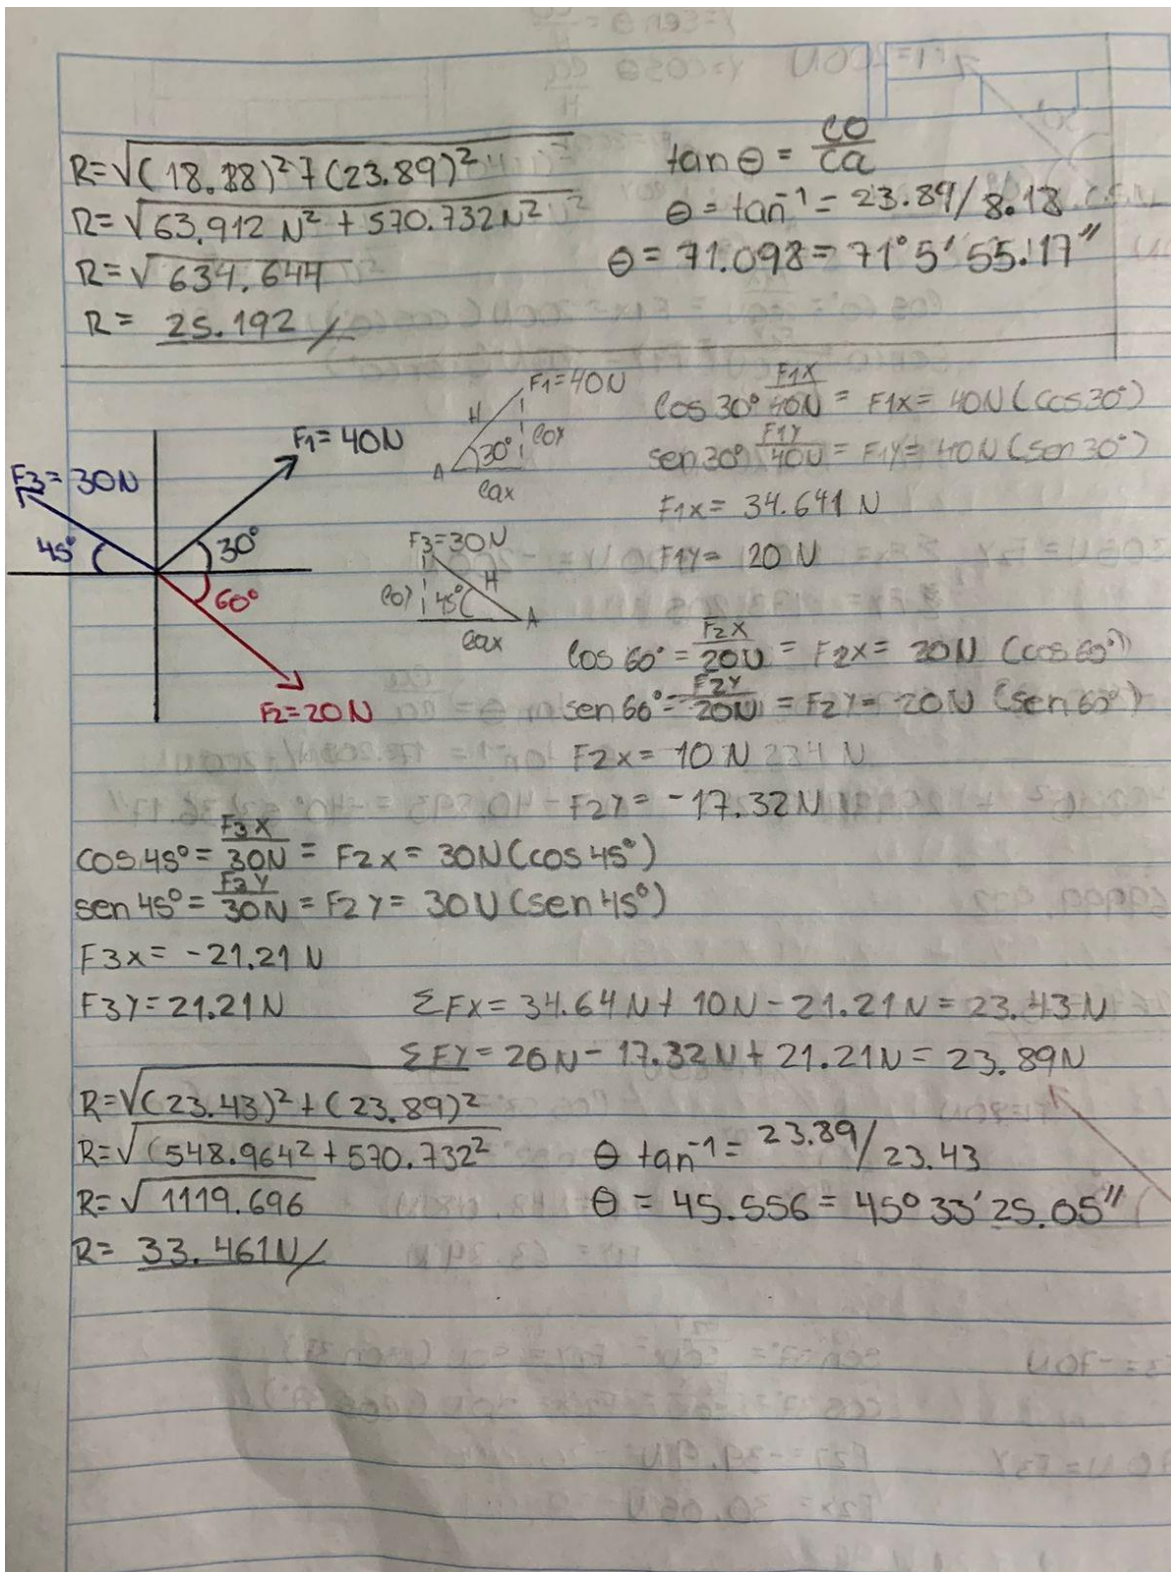 R=√(18.88)²+(23.89)²
R=√63.912 N² + 570.732N²
R=√634.644
R= 25.192
tan θ = CO/Ca
θ = tan⁻¹ = 23.89/8.18
θ = 71.098 = 71° 5' 55.17"
F1=40N
F3=30N
45°
30°
60°
F2=20N
F1=40N
H
30°
COY
A
Cax
F3=30N
H
COY
45°
A
Cax
Cos 30° F1X/40N = F1X= 40N (cos30°)
sen30° F1Y/40N = F1Y= 40N (sen 30°)
F1X= 34.641 N
F1Y= 20 N
Cos 60° = F2X/20N = F2X= 20N (cos60°)
sen 60° = F2Y/20N = F2Y= 20N (sen 60°)
F2X= 10 N
F2Y= -17.32N
cos 45° = F3X/30N = F2X = 30N (cos 45°)
sen 45° = F3Y/30N = F2Y = 30N (sen 45°)
F3X= -21.21 N
F3Y= 21.21N
ΣFX= 34.64N + 10N - 21.21N = 23.43 N
ΣFY= 20N - 17.32N + 21.21N = 23.89N
R=√(23.43)² + (23.89)²
R=√(548.964² + 570.732²
R=√1119.696
R= 33.461N
θ tan⁻¹ = 23.89/23.43
θ = 45.556 = 45° 33' 25.05"